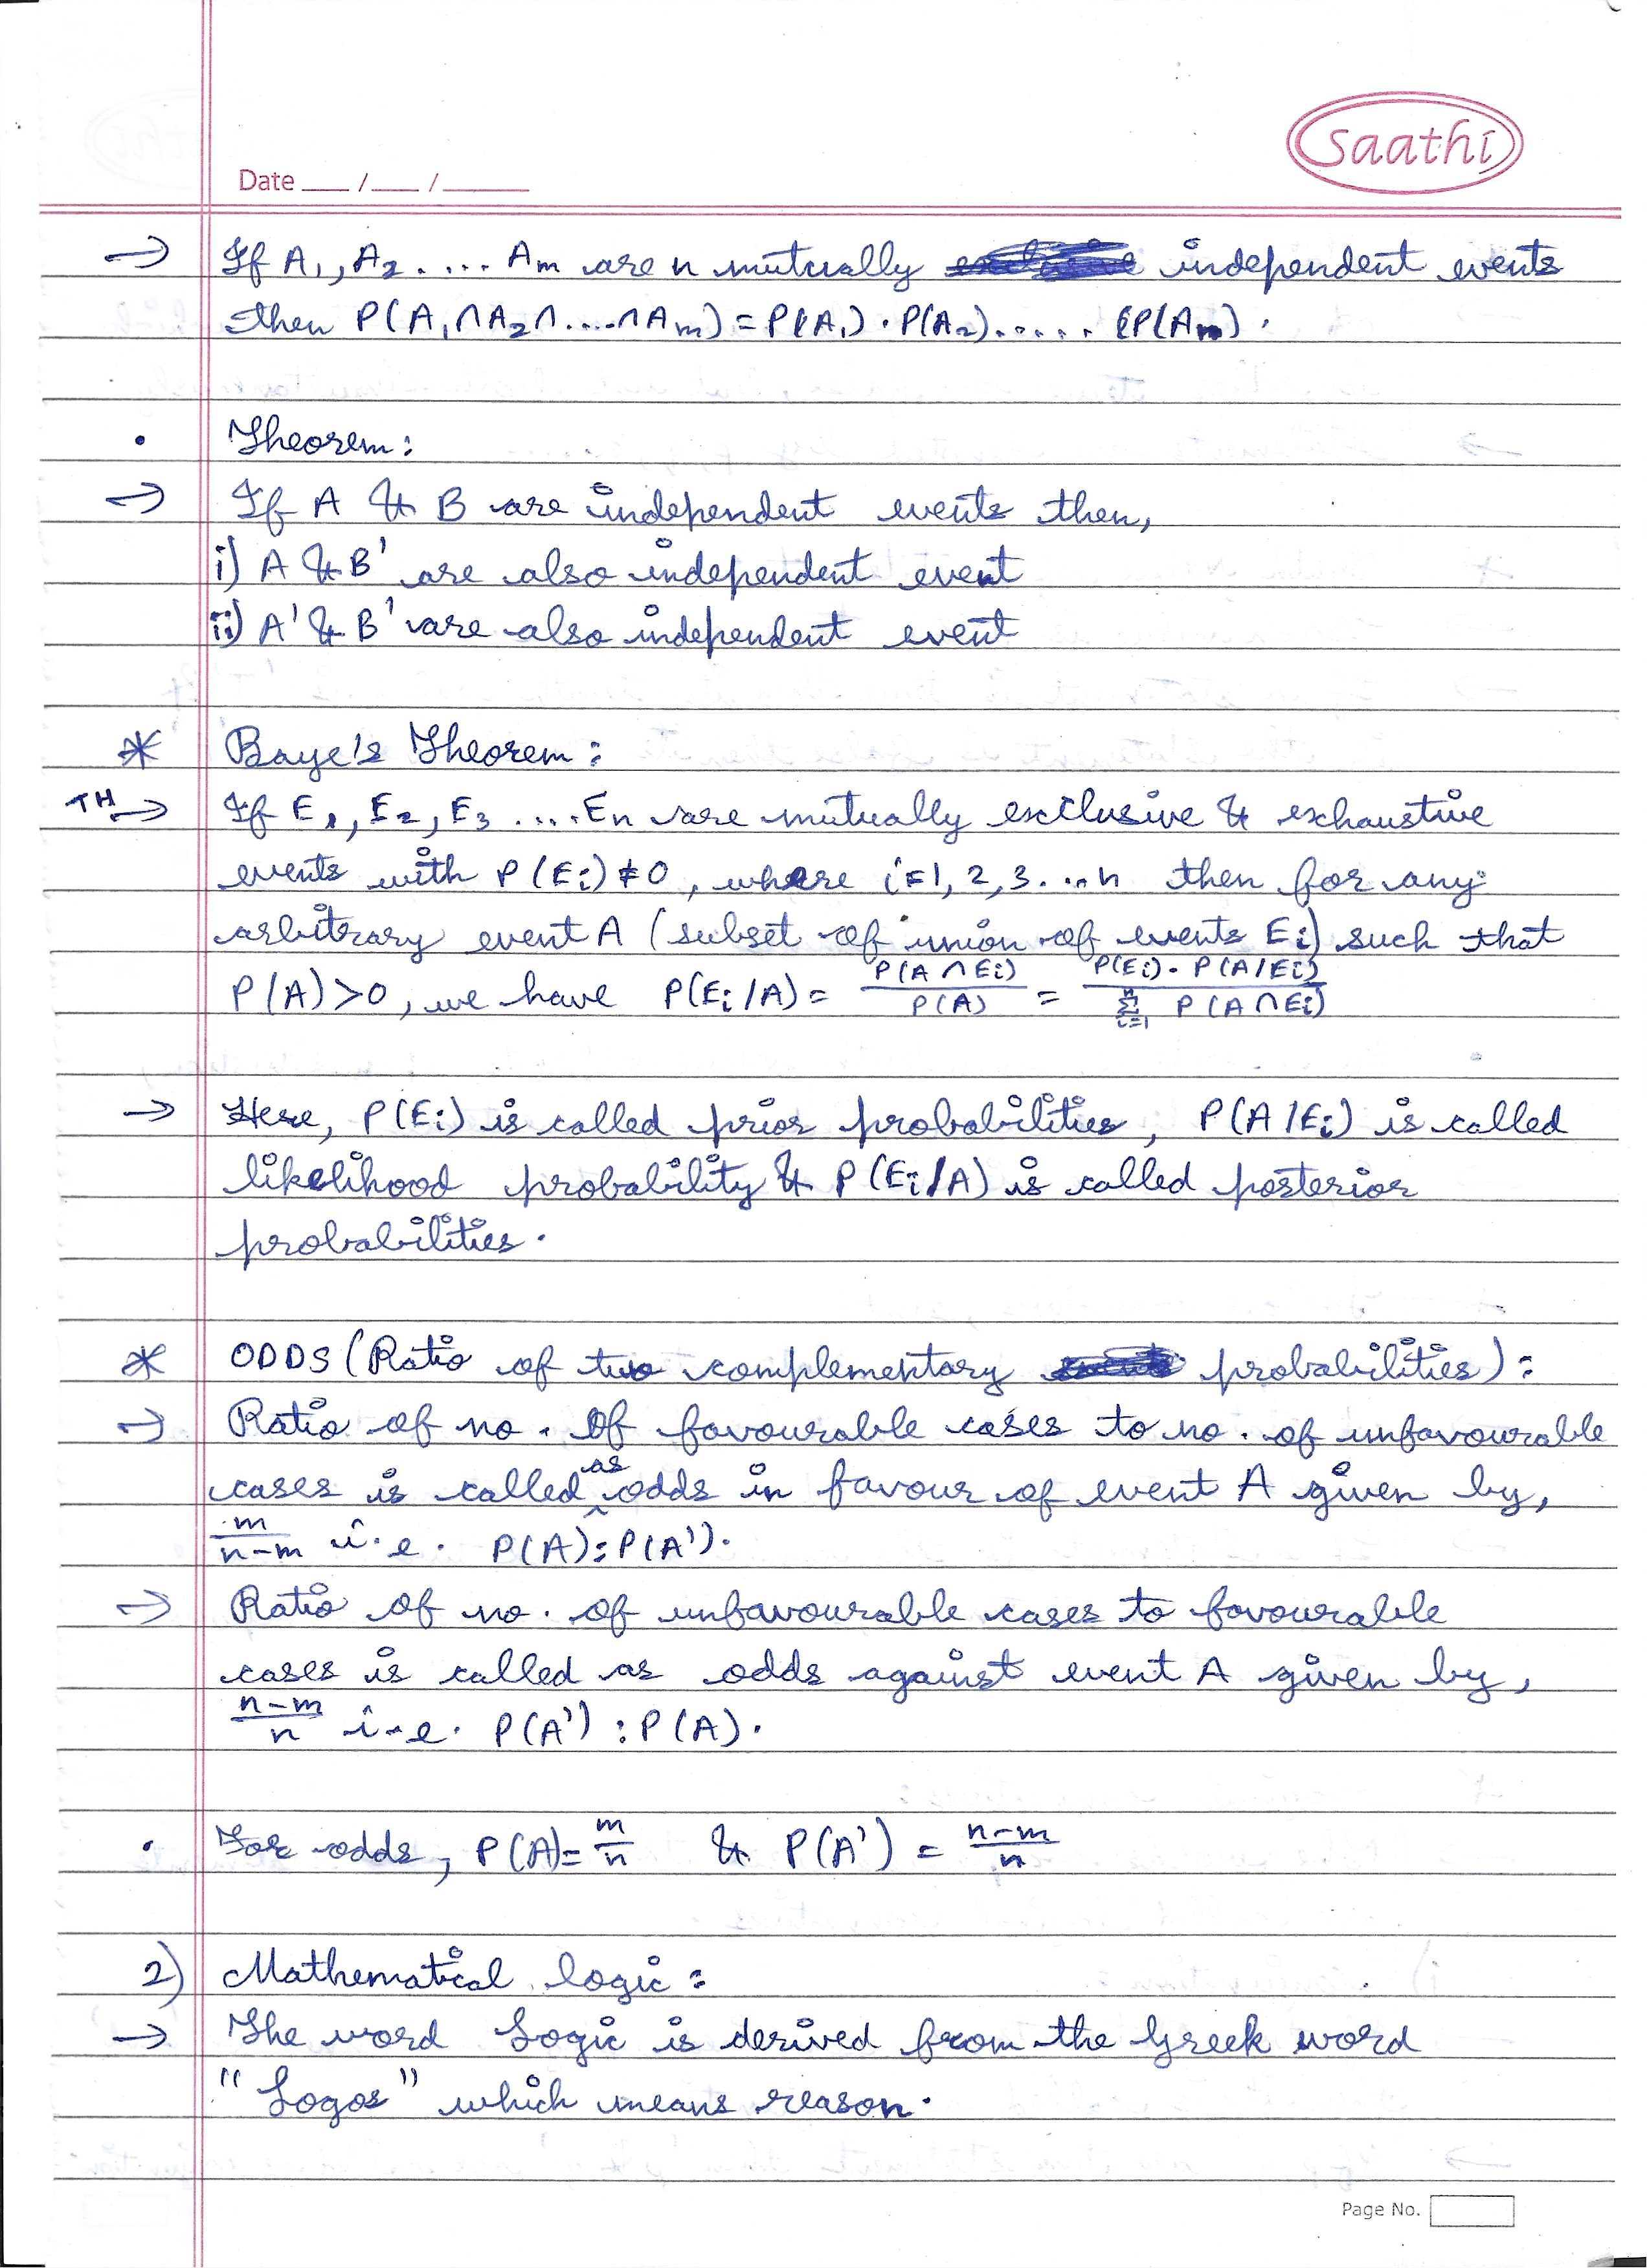 saathi
Date ___ / ___ / ______
→ If A₁, A₂ .... Am are n mutually independent events
then P(A₁∩A₂∩....∩Am) = P(A₁) · P(A₂)...... P(Am).
• Theorem:
→ If A & B are independent events then,
i) A & B' are also independent event
ii) A' & B' are also independent event
* Baye's Theorem:
TH → If E₁, E₂, E₃ ....En are mutually exclusive & exhaustive
events with P(Ei) ≠ 0, where i=1, 2, 3...n then for any
arbitrary event A (subset of union of events Ei) such that
P(A)>0, we have P(Ei/A) = P(A∩Ei)/P(A) = P(Ei)·P(A/Ei)/∑ⁿᵢ₌₁ P(A∩Ei)
→ Here, P(Ei) is called prior probabilities, P(A/Ei) is called
likelihood probability & P(Ei/A) is called posterior
probabilities.
* ODDS (Ratio of two complementary probabilities):
→ Ratio of no. of favourable cases to no. of unfavourable
cases is called as odds in favour of event A given by,
m/n-m i.e. P(A):P(A').
→ Ratio of no. of unfavourable cases to favourable
cases is called as odds against event A given by,
n-m/n i.e. P(A') : P(A).
• For odds, P(A)= m/n & P(A') = n-m/n
2) Mathematical logic:
→ The word Logic is derived from the Greek word
"Logos" which means reason.
Page No.